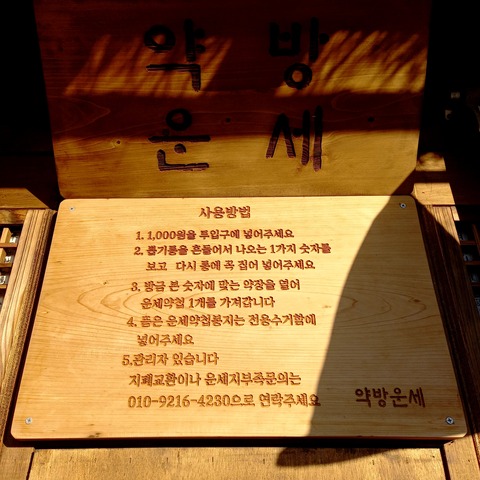 약 방
운 세
사용방법
1. 1,000원을 투입구에 넣어주세요
2. 뽑기통을 흔들어서 나오는 1가지 숫자를
보고 다시 통에 꼭 집어 넣어주세요
3. 방금 본 숫자에 맞는 약장을 열어
운세약첩 1개를 가져갑니다
4. 뜯은 운세약첩봉지는 전용수거함에
넣어주세요
5.관리자 있습니다
지폐교환이나 운세지부족문의는
010-9216-4230으로 연락주세요
약방운세